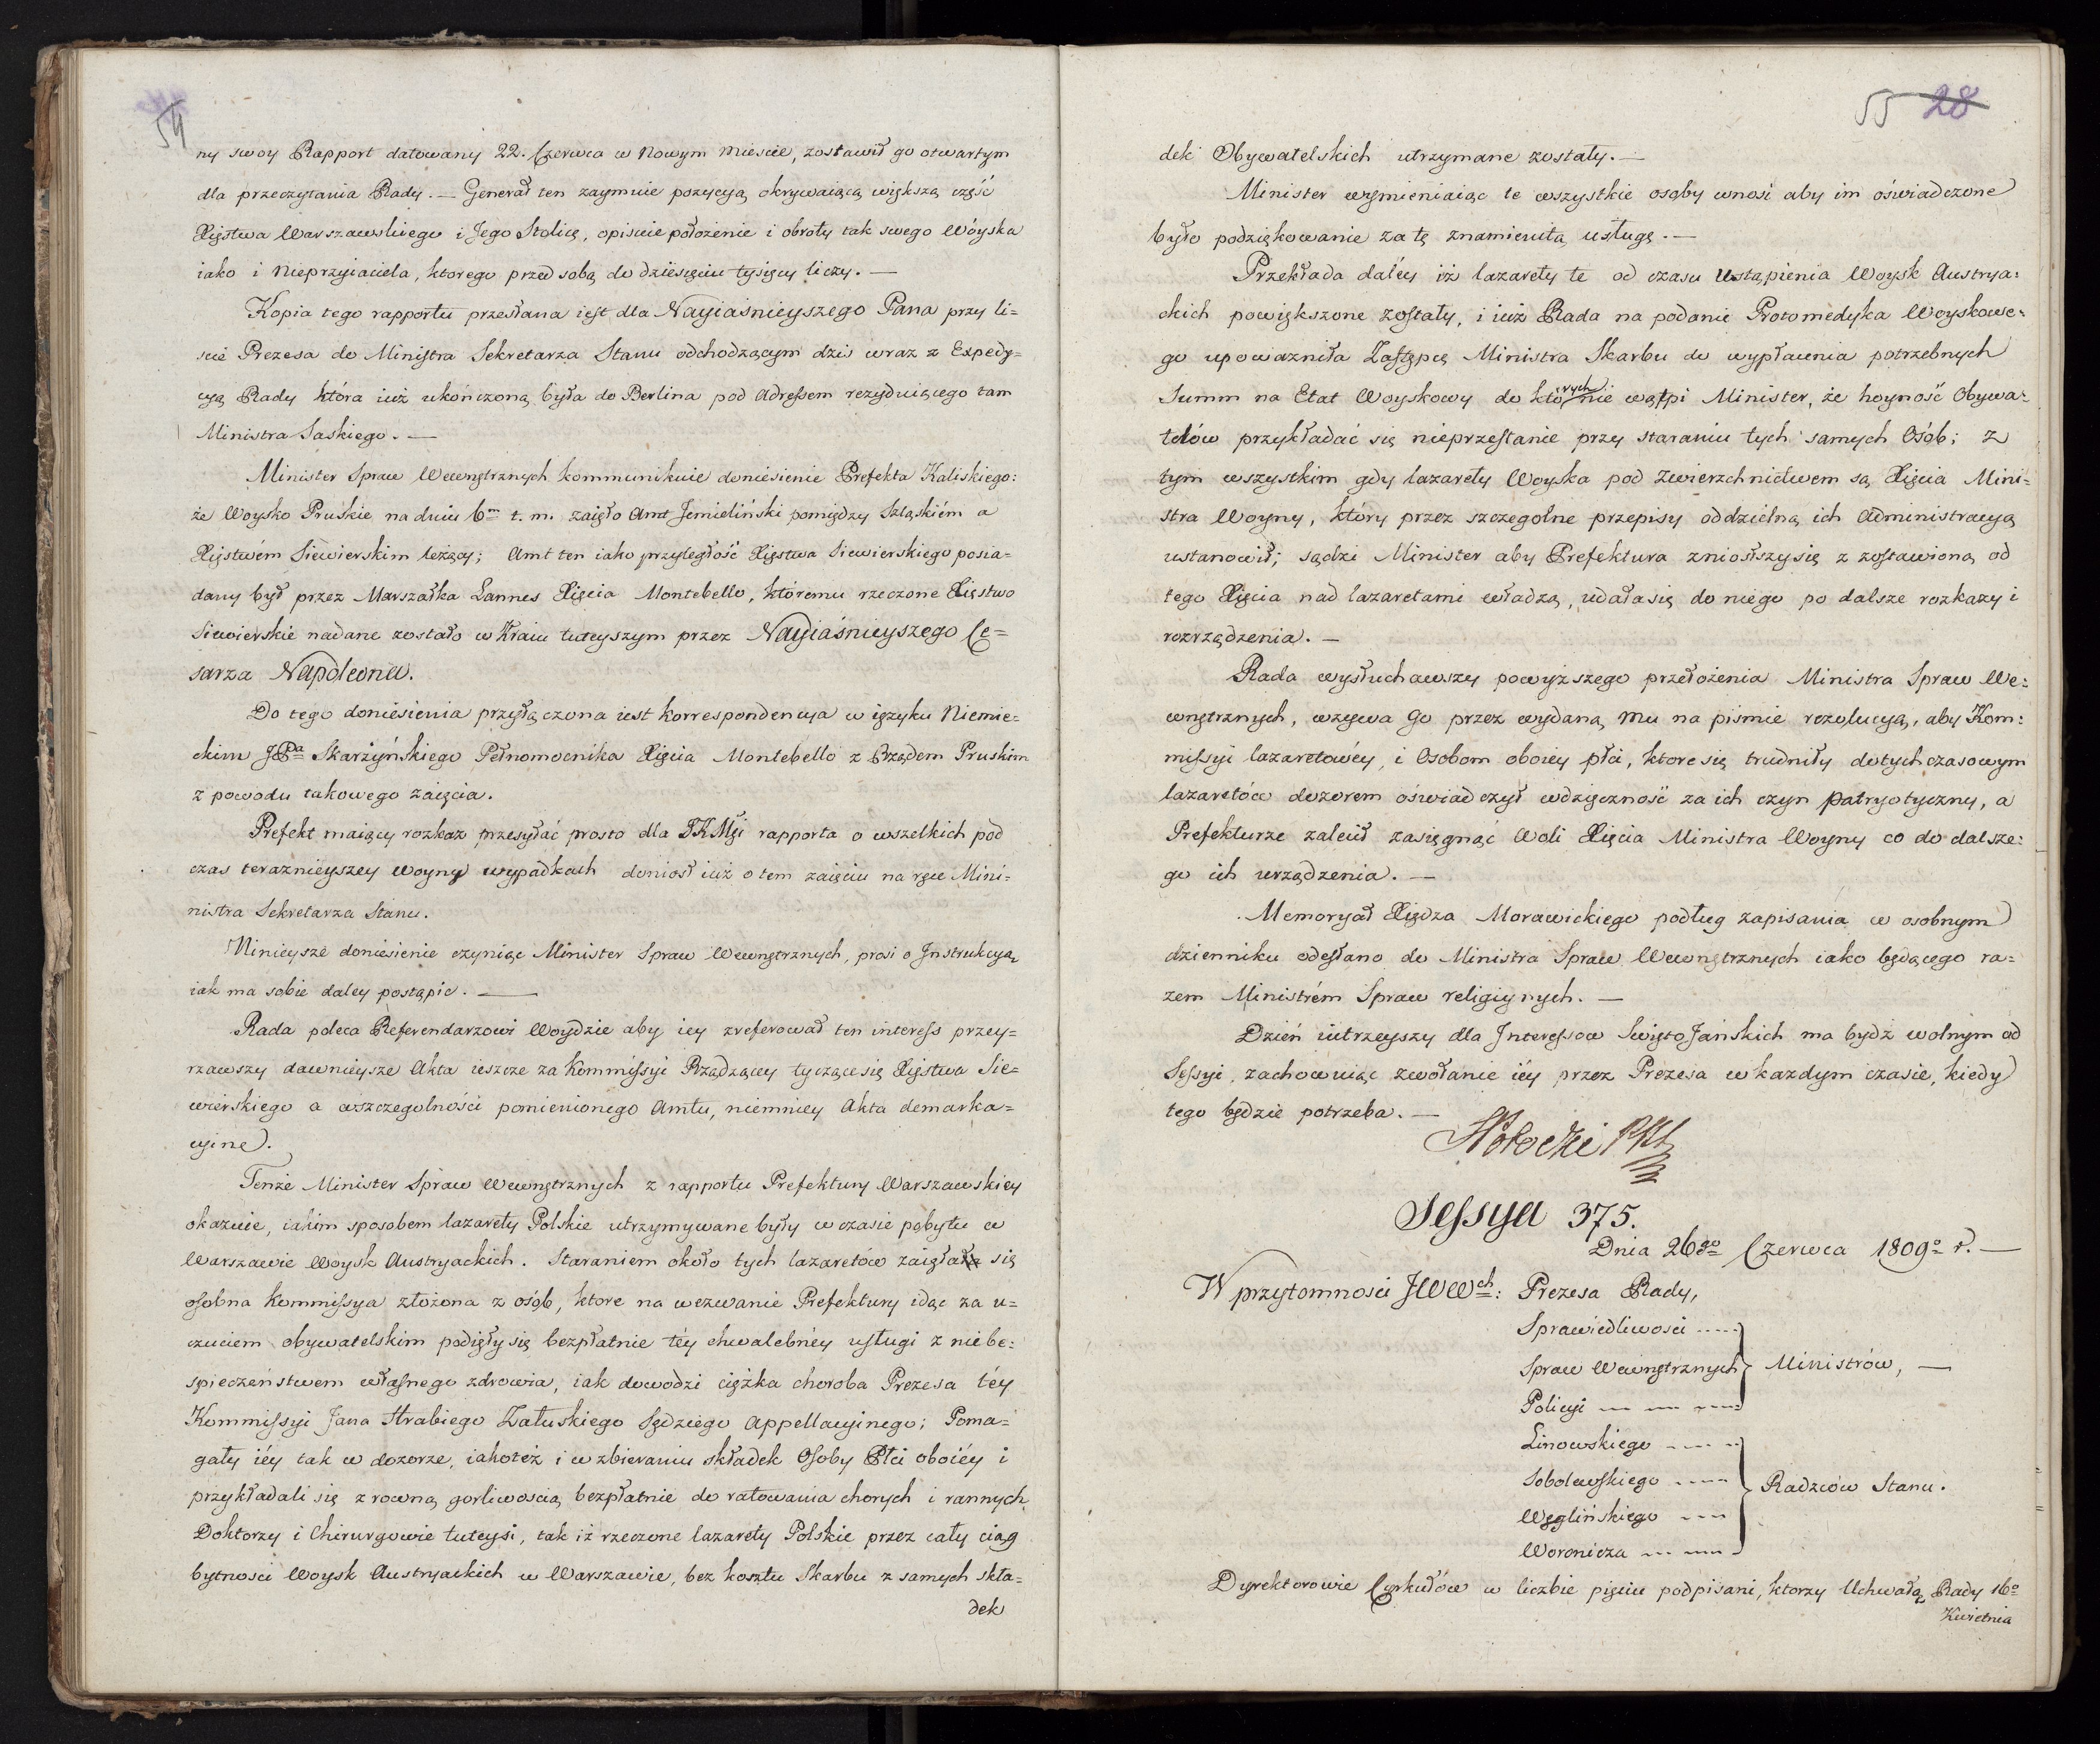 54
ny swoy Rapport datowany 22. Czerwca w Nowym Miescie, zostawił go otwartym
dla przeczytania Rady. — Generał ten zaymuie pozycyą okrywaiącą większą część
Xięstwa Warszawskiego i Jego Stolicę, opisuie położenie i obroty tak swego Woyska
iako i Nieprzyiaciela, ktorego przed sobą do dziesięciu tysięcy liczy. —
Kopia tego rapportu przesłana iest dla Nayiaśnieyszego Pana przy li=
scie Prezesa do Ministra Sekretarza Stanu odchodzącym dzis wraz z Expedy=
cyą Rady która iuż ukończoną była do Berlina pod Adressem rezyduiącego tam
Ministra Saskiego. —
Minister Spraw Wewnętrznych kommunikuie doniesienie Prefekta Kaliskiego:
że Woysko Pruskie na dniu 6m t. m. zaięło Amt Jemieliński pomiędzy Szląskiém a
Xięstwém Siewierskim leżący; Amt ten iako przyległość Xięstwa Siewierskiego posia=
dany był przez Marszałka Lannes Xięcia Montebello, któremu rzeczone Xięstwo
Siewierskie nadane zostało w Kraiu tuteyszym przez Nayiaśnieyszego Ce=
sarza Napoleona.
Do tego doniesienia przyłączona iest korrespondencya w ięzyku Niemie=
ckim JPa Skarżyńskiego Pełnomocnika Xięcia Montebello z Rządem Pruskim
z powodu takowego zaięcia.
Prefekt maiący rozkaz przesyłać prosto dla JKMśi rapporta o wszelkich pod
czas teraznieyszey woyny wypadkach doniosł iuż o tem zaięciu na ręce Mini=
nistra Sekretarza Stanu.
Ninieysze doniesienie czyniąc Minister Spraw Wewnętrznych, prosi o Instrukcyą,
iak ma sobie daley postąpic. —
Rada poleca Referendarzowi Woydzie aby iey zreferował ten interess przey=
rzawszy dawnieysze Akta ieszcze za Kommissyi Rządzącey tyczące się Xięstwa Sie=
wierskiego a wszczegolności pomienionego Amtu, niemniey Akta demarka=
cyine.
Tenże Minister Spraw Wewnętrznych z rapportu Prefektury Warszawskiey
okazuie, iakim sposobem lazarety Polskie utrzymywane były w czasie pobytu w
Warszawie Woysk Austryackich. Staraniem około tych lazaretów zaięła się
osobna Kommissya złożona z osób, ktore na wezwanie Prefektury idąc za u=
czuciem obywatelskim podięły się bezpłatnie téy chwalebnéy usługi z niebe=
spieczeństwem własnego zdrowia, iak dowodzi ciężka choroba Prezesa téy
Kommissyi Jana Hrabiego Załuskiego Sędziego Appellacyinego; Poma=
gały iéy tak w dozorze, iakoteż i w zbieraniu składek Osoby Płci oboiéy i
przykładali się z rowną gorliwoscią bezpłatnie do ratowania chorych i rannych
Doktorzy i Chirurgowie tuteysi, tak iż rzeczone lazarety Polskie przez cały ciąg
bytnosci Woysk Austryackich w Warszawie, bez kosztu Skarbu z samych skła=
dek
55 28
dek Obywatelskich utrzymane zostały. —
Minister wymieniaiąc te wszystkie osoby wnosi aby im oświadczone
było podziękowanie za tę znamienitą usługę. —
Przekłada daléy iż lazarety te od czasu Ustąpienia Woysk Austrya=
ckich powiększone zostały, i iuż Rada na podanie Protomedyka Woyskowe=
go upoważniła Zastępcę Ministra Skarbu do wypłacenia potrzebnych
Summ na Etat Woyskowy do których nie wątpi Minister, że hoyność Obywa=
telów przykładać się nieprzestanie przy staraniu tych samych Osób; z
tym wszystkim gdy lazarety Woyska pod Zwierzchnictwem są Xięcia Mini=
stra Woyny, który przez szczegolne przepisy oddzielną ich Administracyą
ustanowił; sądzi Minister aby Prefektura zniosłszy się z zostawioną od
tego Xięcia nad lazaretami władzą, udała się do niego po dalsze rozkazy i
rozrządzenia. —
Rada wysłuchawszy powyższego przełożenia Ministra Spraw We=
wnętrznych, wzywa Go przez wydaną mu na piśmie rezolucyą, aby Kom=
missyi lazaretowéy, i Osobom oboiey płci, ktore się trudniły dotychczasowym
lazaretów dozorem oświadczył wdzięczność za ich czyn Patryotyczny, a
Prefekturze zalecił zasięgnąć Woli Xięcia Ministra Woyny co do dalsze=
go ich urządzenia. —
Memoryał Xiędza Morawickiego podług zapisania w osobnym
dzienniku odesłano do Ministra Spraw Wewnętrznych iako będącego ra=
zem Ministrém Spraw religiynych. —
Dzień iutrzeyszy dla Interessow Swięto Jańskich ma bydź wolnym od
Sessyi, zachowuiąc zwołanie iéy przez Prezesa w kazdym czasie, kiedy
tego będzie potrzeba. —
Sessya 375.
Dnia 26go Czerwca 1809o r. —
W przytomnosci JWWch: Prezesa Rady,
Sprawiedliwosci
Spraw Wewnętrznych } Ministrów, —
Policyi
Linowskiego
Sobolewskiego } Radzców Stanu.
Węglińskiego
Woronicza
Dyrektorowie Cyrkułów w liczbie pięciu podpisani, ktorzy Uchwałą Rady 16o
Kwietnia